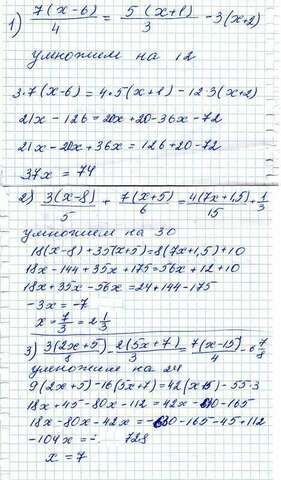 1) 7(x-6)/4 = 5(x+1)/3 - 3(x+2)
умножим на 12
3·7(x-6) = 4·5(x+1) - 12·3(x+2)
21x - 126 = 20x + 20 - 36x - 72
21x - 20x + 36x = 126 + 20 - 72
37x = 74
2) 3(x-8)/5 + 7(x+5)/6 = 4(7x+1,5)/15 + 1/3
умножим на 30
18(x-8) + 35(x+5) = 8(7x+1,5) + 10
18x - 144 + 35x + 175 = 56x + 12 + 10
18x + 35x - 56x = 24 + 144 - 175
-3x = -7
x = 7/3 = 2 1/3
3) 3(2x+5)/8 - 2(5x+7)/3 = 7(x-15)/4 - 6 7/8
умножим на 24
9(2x+5) - 16(5x+7) = 42(x-15) - 55·3
18x + 45 - 80x - 112 = 42x - 630 - 165
18x - 80x - 42x = -630 - 165 - 45 + 112
-104x = -. 728
x = 7